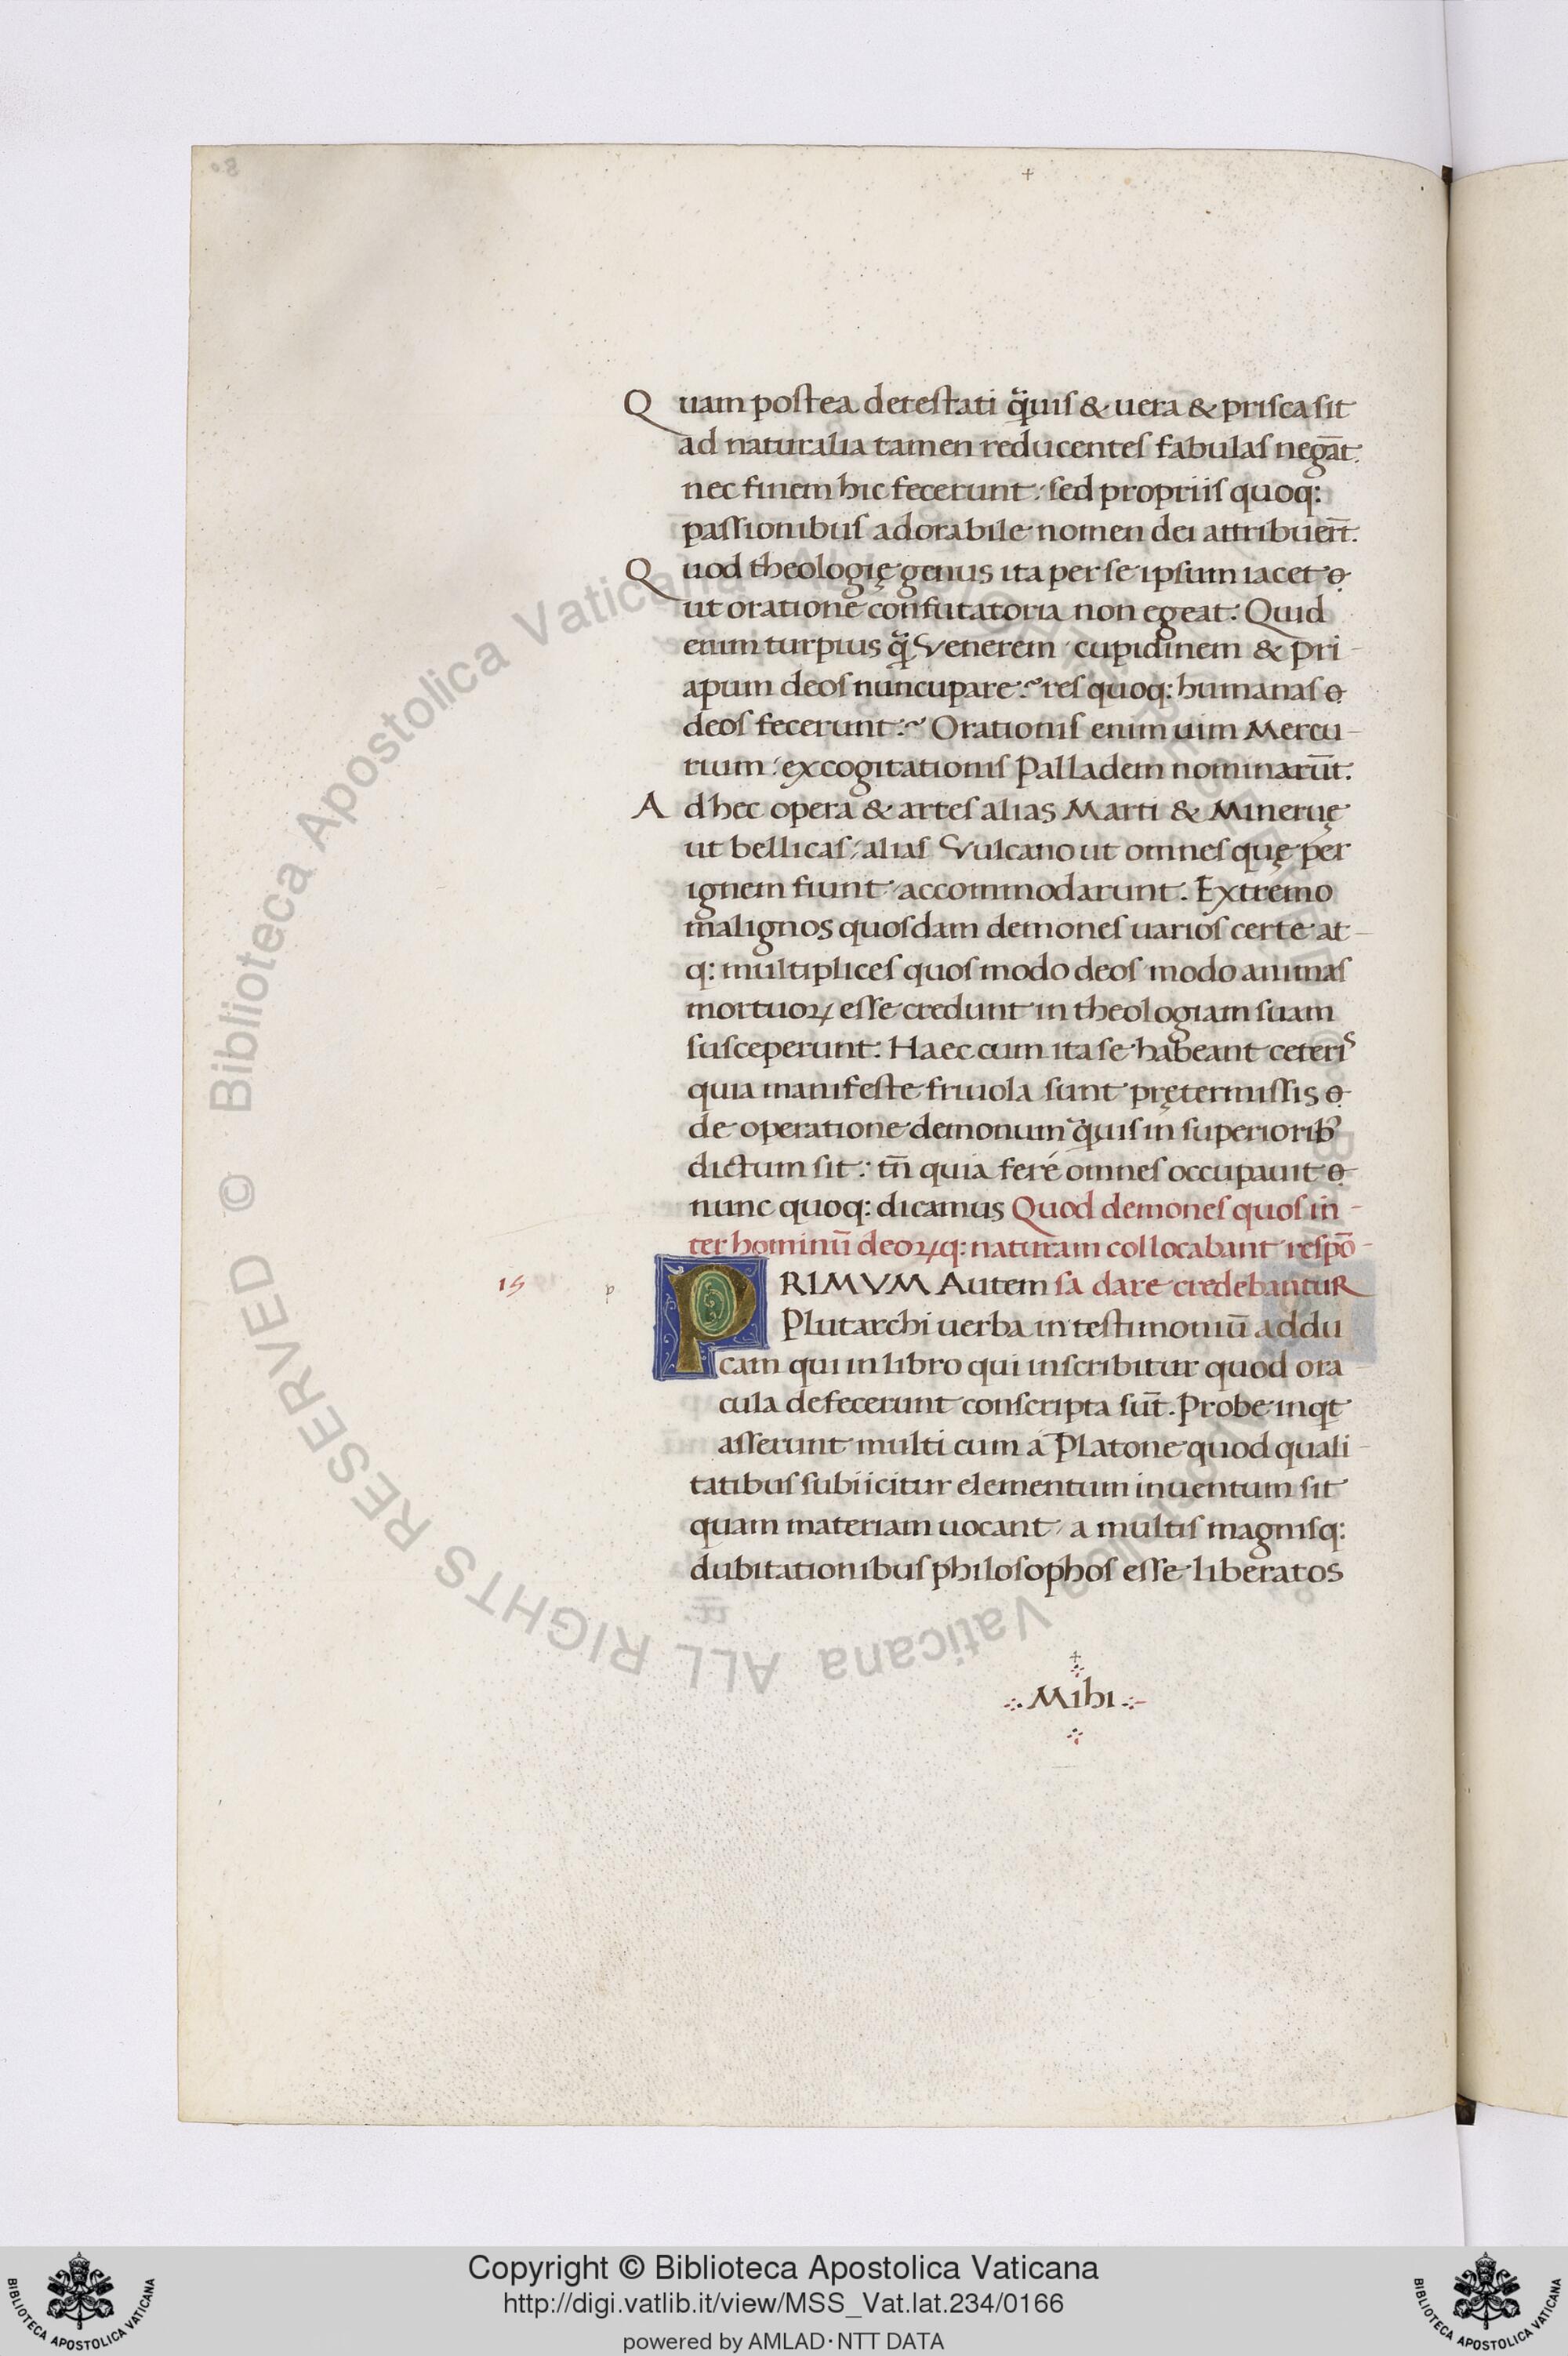 Quam postea detestati q̃uis & uera & prisca sit
ad naturalia tamen reducentes fabulas negāt.
nec finem hic fecerunt: sed propriis quoq:
passionibus adorabile nomen dei attribuerūt.
Quod theologię genus ita per se ipsum iacet
ut oratione confutatoria non egeat: Quid
enim turpius q̃ Venerem cupidinem & pri-
apum deos nuncupare: res quoq: humanas
deos fecerunt: Orationis enim uim Mercu-
rium: excogitationis Palladem nominarūt.
Ad hec opera & artes alias Marti & Mineruę
ut bellicas: alias Vulcano ut omnes quę per
ignem fiunt accommodarunt. Extremo
malignos quosdam demones uarios certe at-
q: multiplices quos modo deos modo animas
mortuoꝝ esse credunt in theologiam suam
susceperunt: Haec cum ita se habeant ceteris
quia manifeste friuola sunt prętermissis
de operatione demonum q̃uis in superiorib⁹
dictum sit: tn̄ quia feré omnes occupauit
nunc quoq: dicamus Quod demones quos in-
ter hominū deoꝝq: naturam collocabant respō-
15 p PRIMVM Autem sa dare credebantuR
Plutarchi uerba in testimoniū addu
cam qui in libro qui inscribitur quod ora
cula defecerunt conscripta sūt. Probe inqt
asserunt multi cum a Platone quod quali-
tatibus subiicitur elementum inuentum sit
quam materiam uocant a multis magnisq:
dubitationibus philosophos esse liberatos
Mihi
© Biblioteca Apostolica Vaticana ALL RIGHTS RESERVED
Copyright © Biblioteca Apostolica Vaticana
http://digi.vatlib.it/view/MSS_Vat.lat.234/0166
powered by AMLAD·NTT DATA
BIBLIOTECA APOSTOLICA VATICANA
BIBLIOTECA APOSTOLICA VATICANA